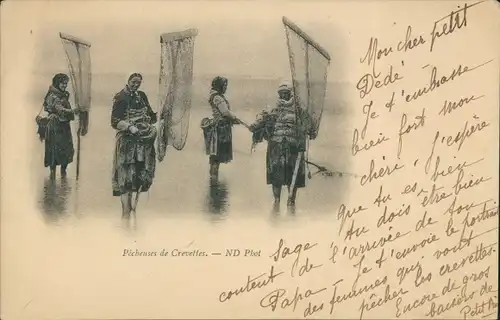 Pêcheuses de Crevettes. — ND Phot
Mon cher petit
Dédé
Je t'embrasse
bien fort mon
chéri. J'espère
que tu es bien
Sage Tu dois être bien
content de l'arrivée de ton
Papa — Je t'envoie le portrait
des femmes qui vont
pêcher les crevettes.
Encore de gros
baisers de
Petit